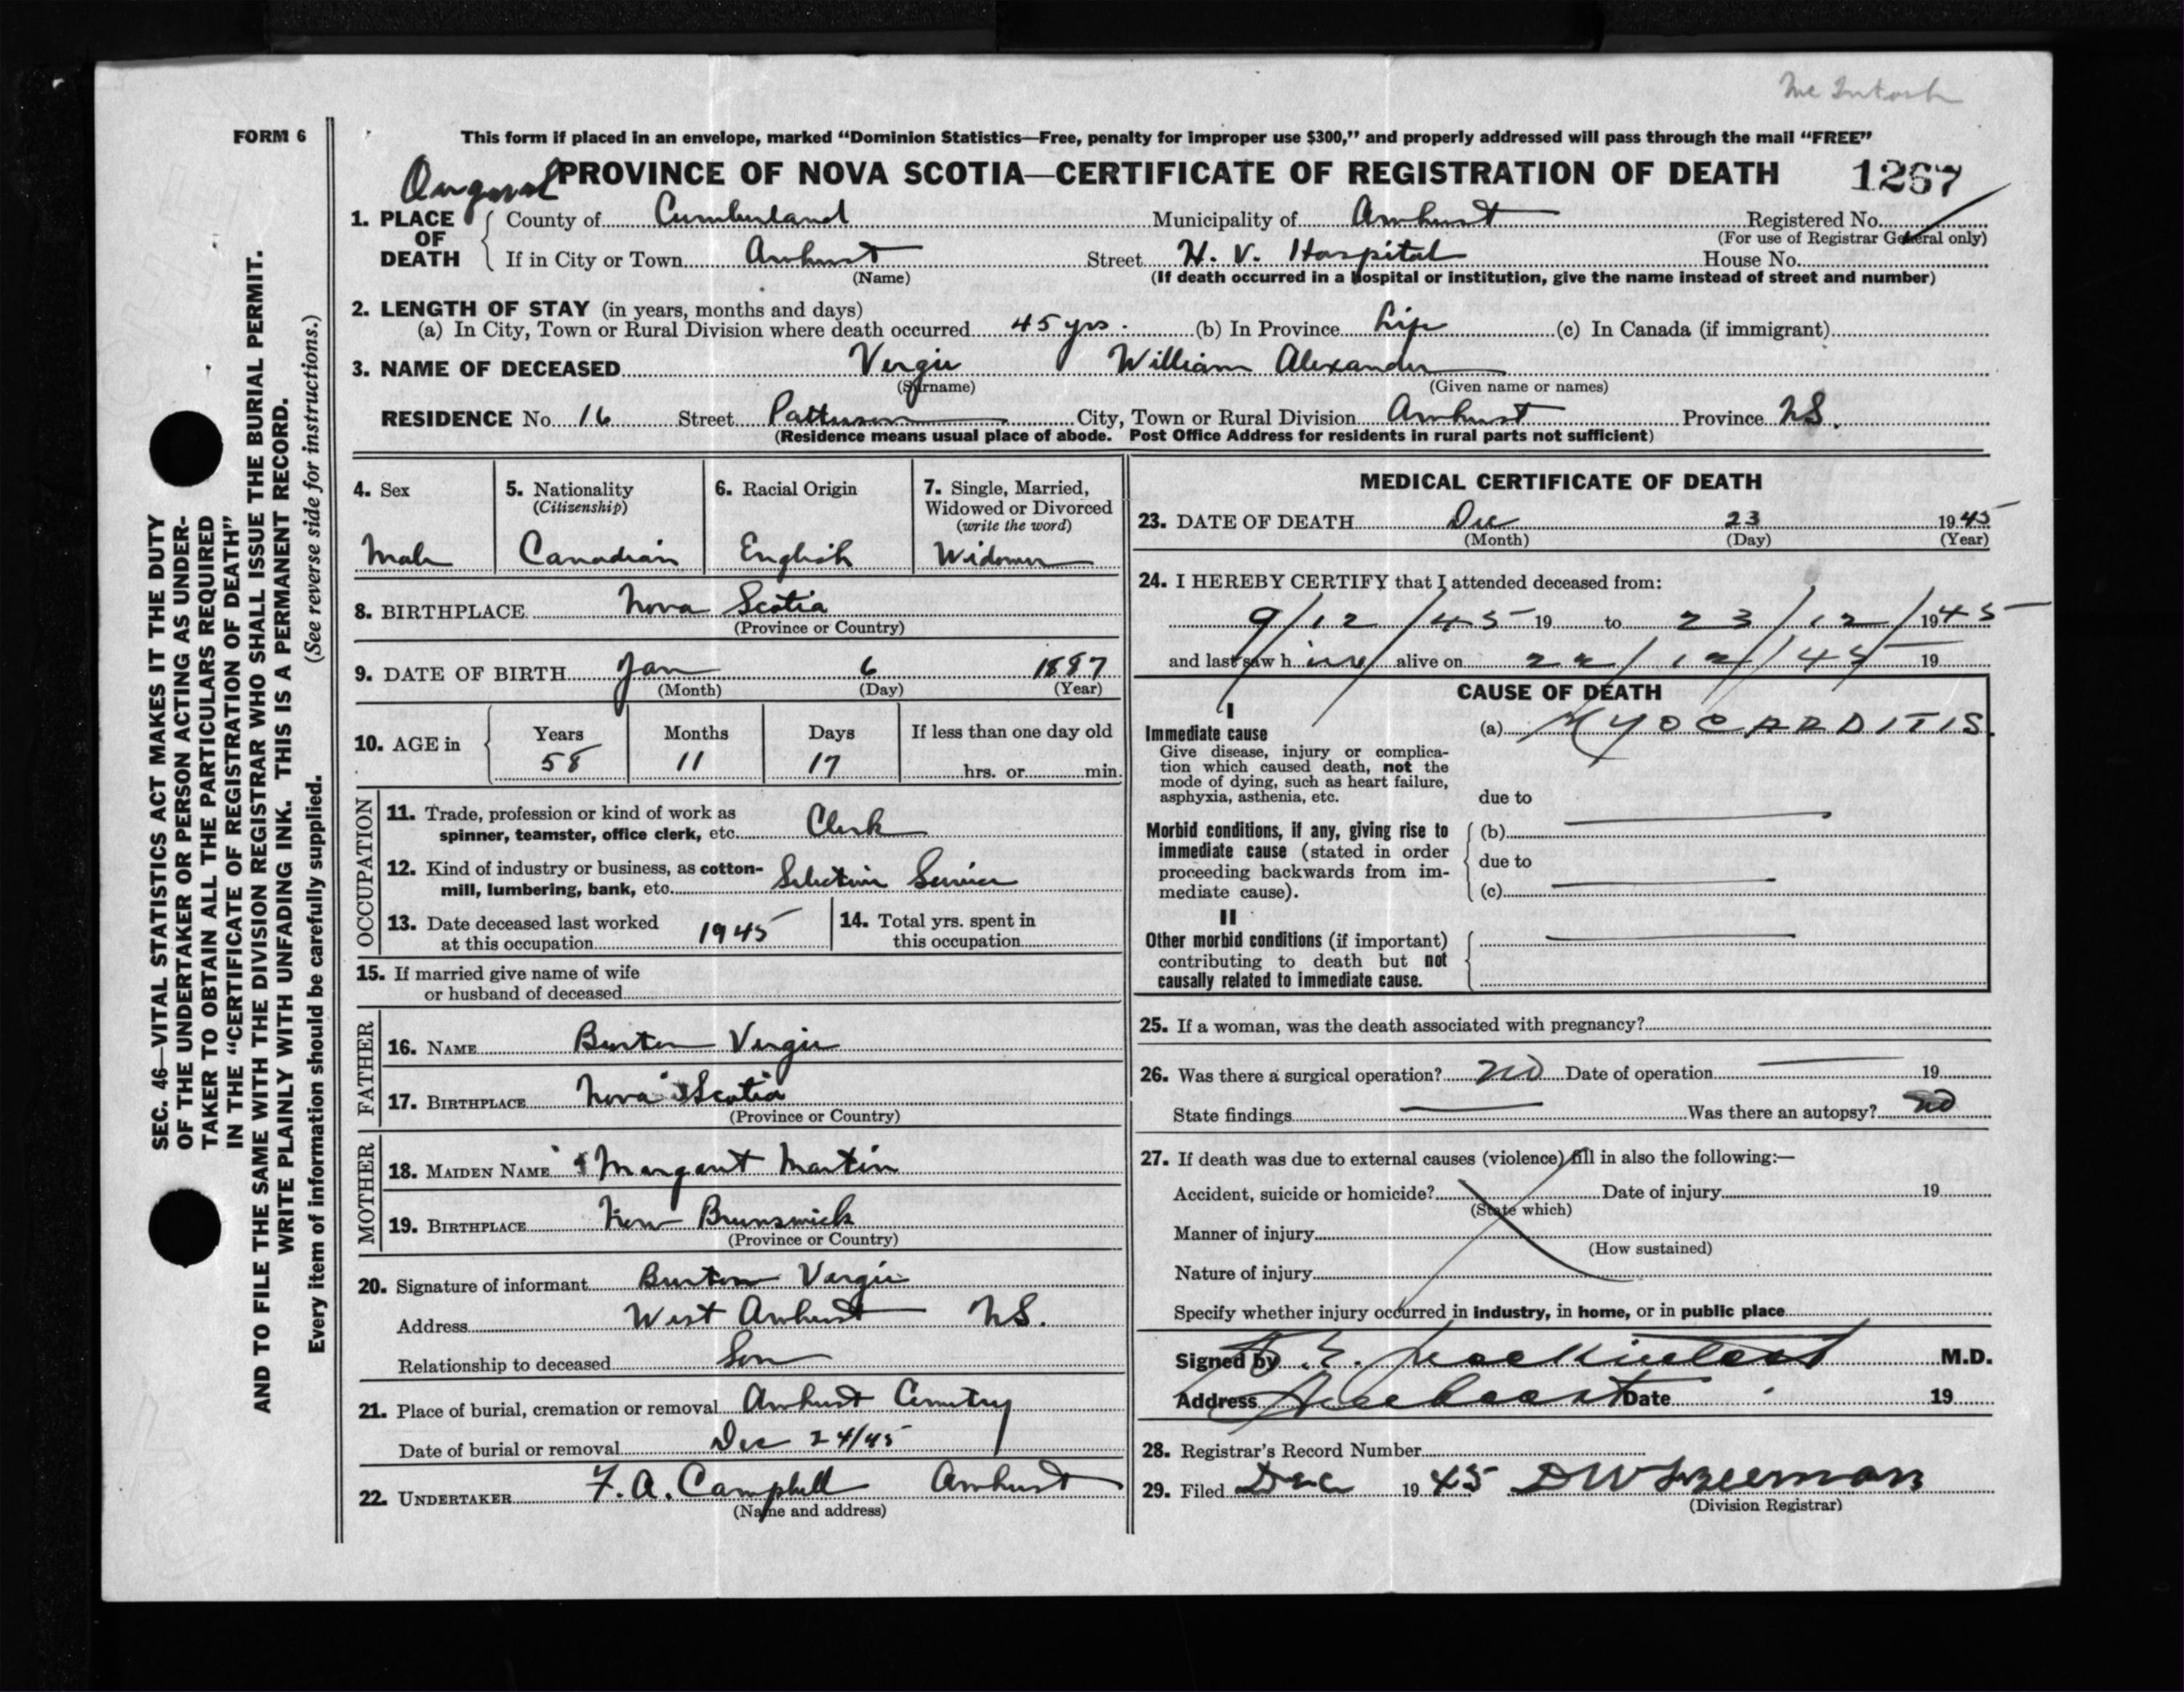 Mc Intosh
FORM 6
This form if placed in an envelope, marked “Dominion Statistics—Free, penalty for improper use $300,” and properly addressed will pass through the mail “FREE”
PROVINCE OF NOVA SCOTIA—CERTIFICATE OF REGISTRATION OF DEATH 1267
1. PLACE OF DEATH County of Cumberland Municipality of Amherst Registered No.
(For use of Registrar General only)
If in City or Town Amherst Street H. V. Hospital House No.
(Name) (If death occurred in a hospital or institution, give the name instead of street and number)
2. LENGTH OF STAY (in years, months and days)
(a) In City, Town or Rural Division where death occurred 45 yrs. (b) In Province Life (c) In Canada (if immigrant)
3. NAME OF DECEASED Vergie William Alexander
(Surname) (Given name or names)
RESIDENCE No. 16 Street Patterson City, Town or Rural Division Amherst Province NS.
(Residence means usual place of abode. Post Office Address for residents in rural parts not sufficient)
4. Sex 5. Nationality (Citizenship) 6. Racial Origin 7. Single, Married, Widowed or Divorced (write the word)
Male Canadian English Widower
8. BIRTHPLACE Nova Scotia
(Province or Country)
9. DATE OF BIRTH Jan 6 1887
(Month) (Day) (Year)
10. AGE in Years Months Days If less than one day old
58 11 17 hrs. or min.
OCCUPATION
11. Trade, profession or kind of work as
spinner, teamster, office clerk, etc. Clerk
12. Kind of industry or business, as cotton-
mill, lumbering, bank, etc. Selective Service
13. Date deceased last worked
at this occupation 1945
14. Total yrs. spent in
this occupation
15. If married give name of wife
or husband of deceased
FATHER
16. NAME Burton Vergie
17. BIRTHPLACE Nova Scotia
(Province or Country)
MOTHER
18. MAIDEN NAME Margaret Martin
19. BIRTHPLACE New Brunswick
(Province or Country)
20. Signature of informant Burton Vergie
Address West Amherst NS.
Relationship to deceased Son
21. Place of burial, cremation or removal Amherst Cemetry
Date of burial or removal Dec 24/45
22. UNDERTAKER F. A. Campbell Amherst
(Name and address)
MEDICAL CERTIFICATE OF DEATH
23. DATE OF DEATH Dec 23 1945
(Month) (Day) (Year)
24. I HEREBY CERTIFY that I attended deceased from:
9/12/45 19 to 23/12/1945
and last saw him alive on 22/12/45 19
CAUSE OF DEATH
I
Immediate cause
Give disease, injury or complica-
tion which caused death, not the
mode of dying, such as heart failure,
asphyxia, asthenia, etc.
(a) MYOCARDITIS.
due to
Morbid conditions, if any, giving rise to
immediate cause (stated in order
proceeding backwards from im-
mediate cause).
(b)
due to
(c)
II
Other morbid conditions (if important)
contributing to death but not
causally related to immediate cause.
25. If a woman, was the death associated with pregnancy?
26. Was there a surgical operation? NO Date of operation 19
State findings Was there an autopsy? NO
27. If death was due to external causes (violence) fill in also the following:—
Accident, suicide or homicide? Date of injury 19
(State which)
Manner of injury
(How sustained)
Nature of injury
Specify whether injury occurred in industry, in home, or in public place
Signed by M.D.
Address Date 19
28. Registrar's Record Number
29. Filed Dec 1945
(Division Registrar)
SEC. 46—VITAL STATISTICS ACT MAKES IT THE DUTY
OF THE UNDERTAKER OR PERSON ACTING AS UNDER-
TAKER TO OBTAIN ALL THE PARTICULARS REQUIRED
IN THE “CERTIFICATE OF REGISTRATION OF DEATH”
AND TO FILE THE SAME WITH THE DIVISION REGISTRAR WHO SHALL ISSUE THE BURIAL PERMIT.
WRITE PLAINLY WITH UNFADING INK. THIS IS A PERMANENT RECORD.
Every item of information should be carefully supplied. (See reverse side for instructions.)